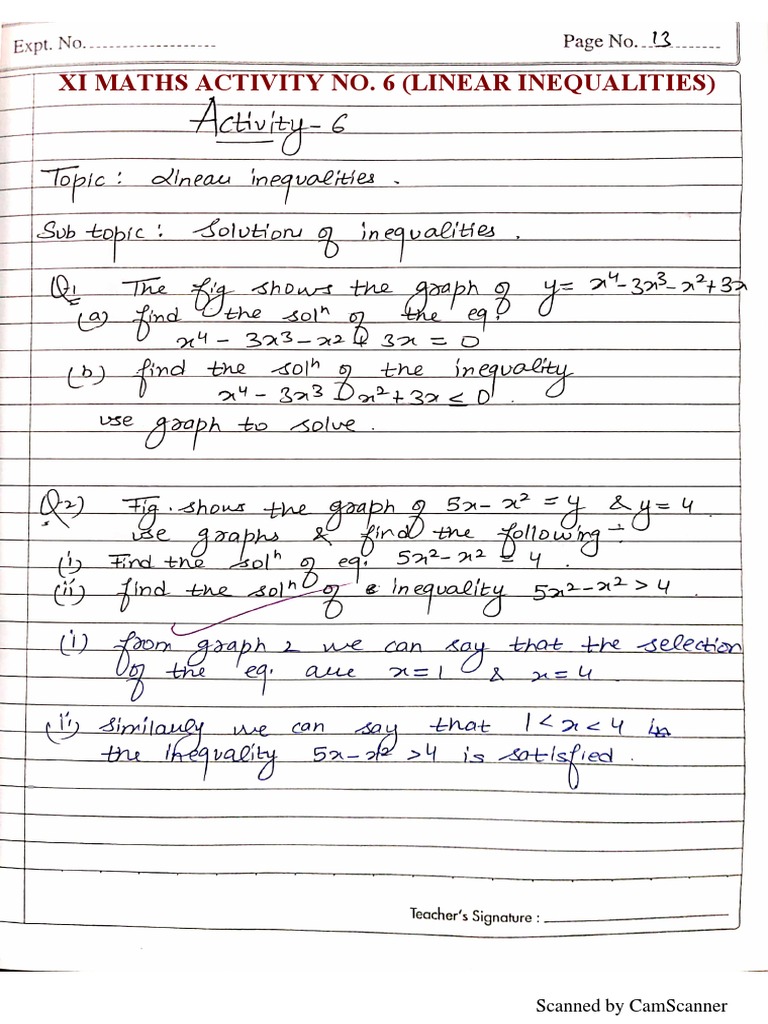 Expt. No.
Page No. 13
XI MATHS ACTIVITY NO. 6 (LINEAR INEQUALITIES)
Activity - 6
Topic : Linear inequalities .
Sub topic : Solution of inequalities .
Q1 The fig shows the graph of y = x⁴-3x³-x²+3x
(a) find the solⁿ of the eq.
x⁴ - 3x³ - x2 + 3x = 0
(b) find the solⁿ of the inequality
x⁴ - 3x³ - x² + 3x ≤ 0 .
use graph to solve .
Q.2) Fig. shows the graph of 5x - x² = y & y = 4 .
use graphs & find the following :-
(i) Find the solⁿ of eq. 5x² - x² = 4 .
(ii) find the solⁿ of inequality 5x² - x² > 4 .
(i) from graph 2 we can say that the selection
of the eq. are x = 1 & x = 4 .
(ii) similarly we can say that 1 < x < 4 in
the inequality 5x - x² > 4 is satisfied .
Teacher's Signature :
Scanned by CamScanner